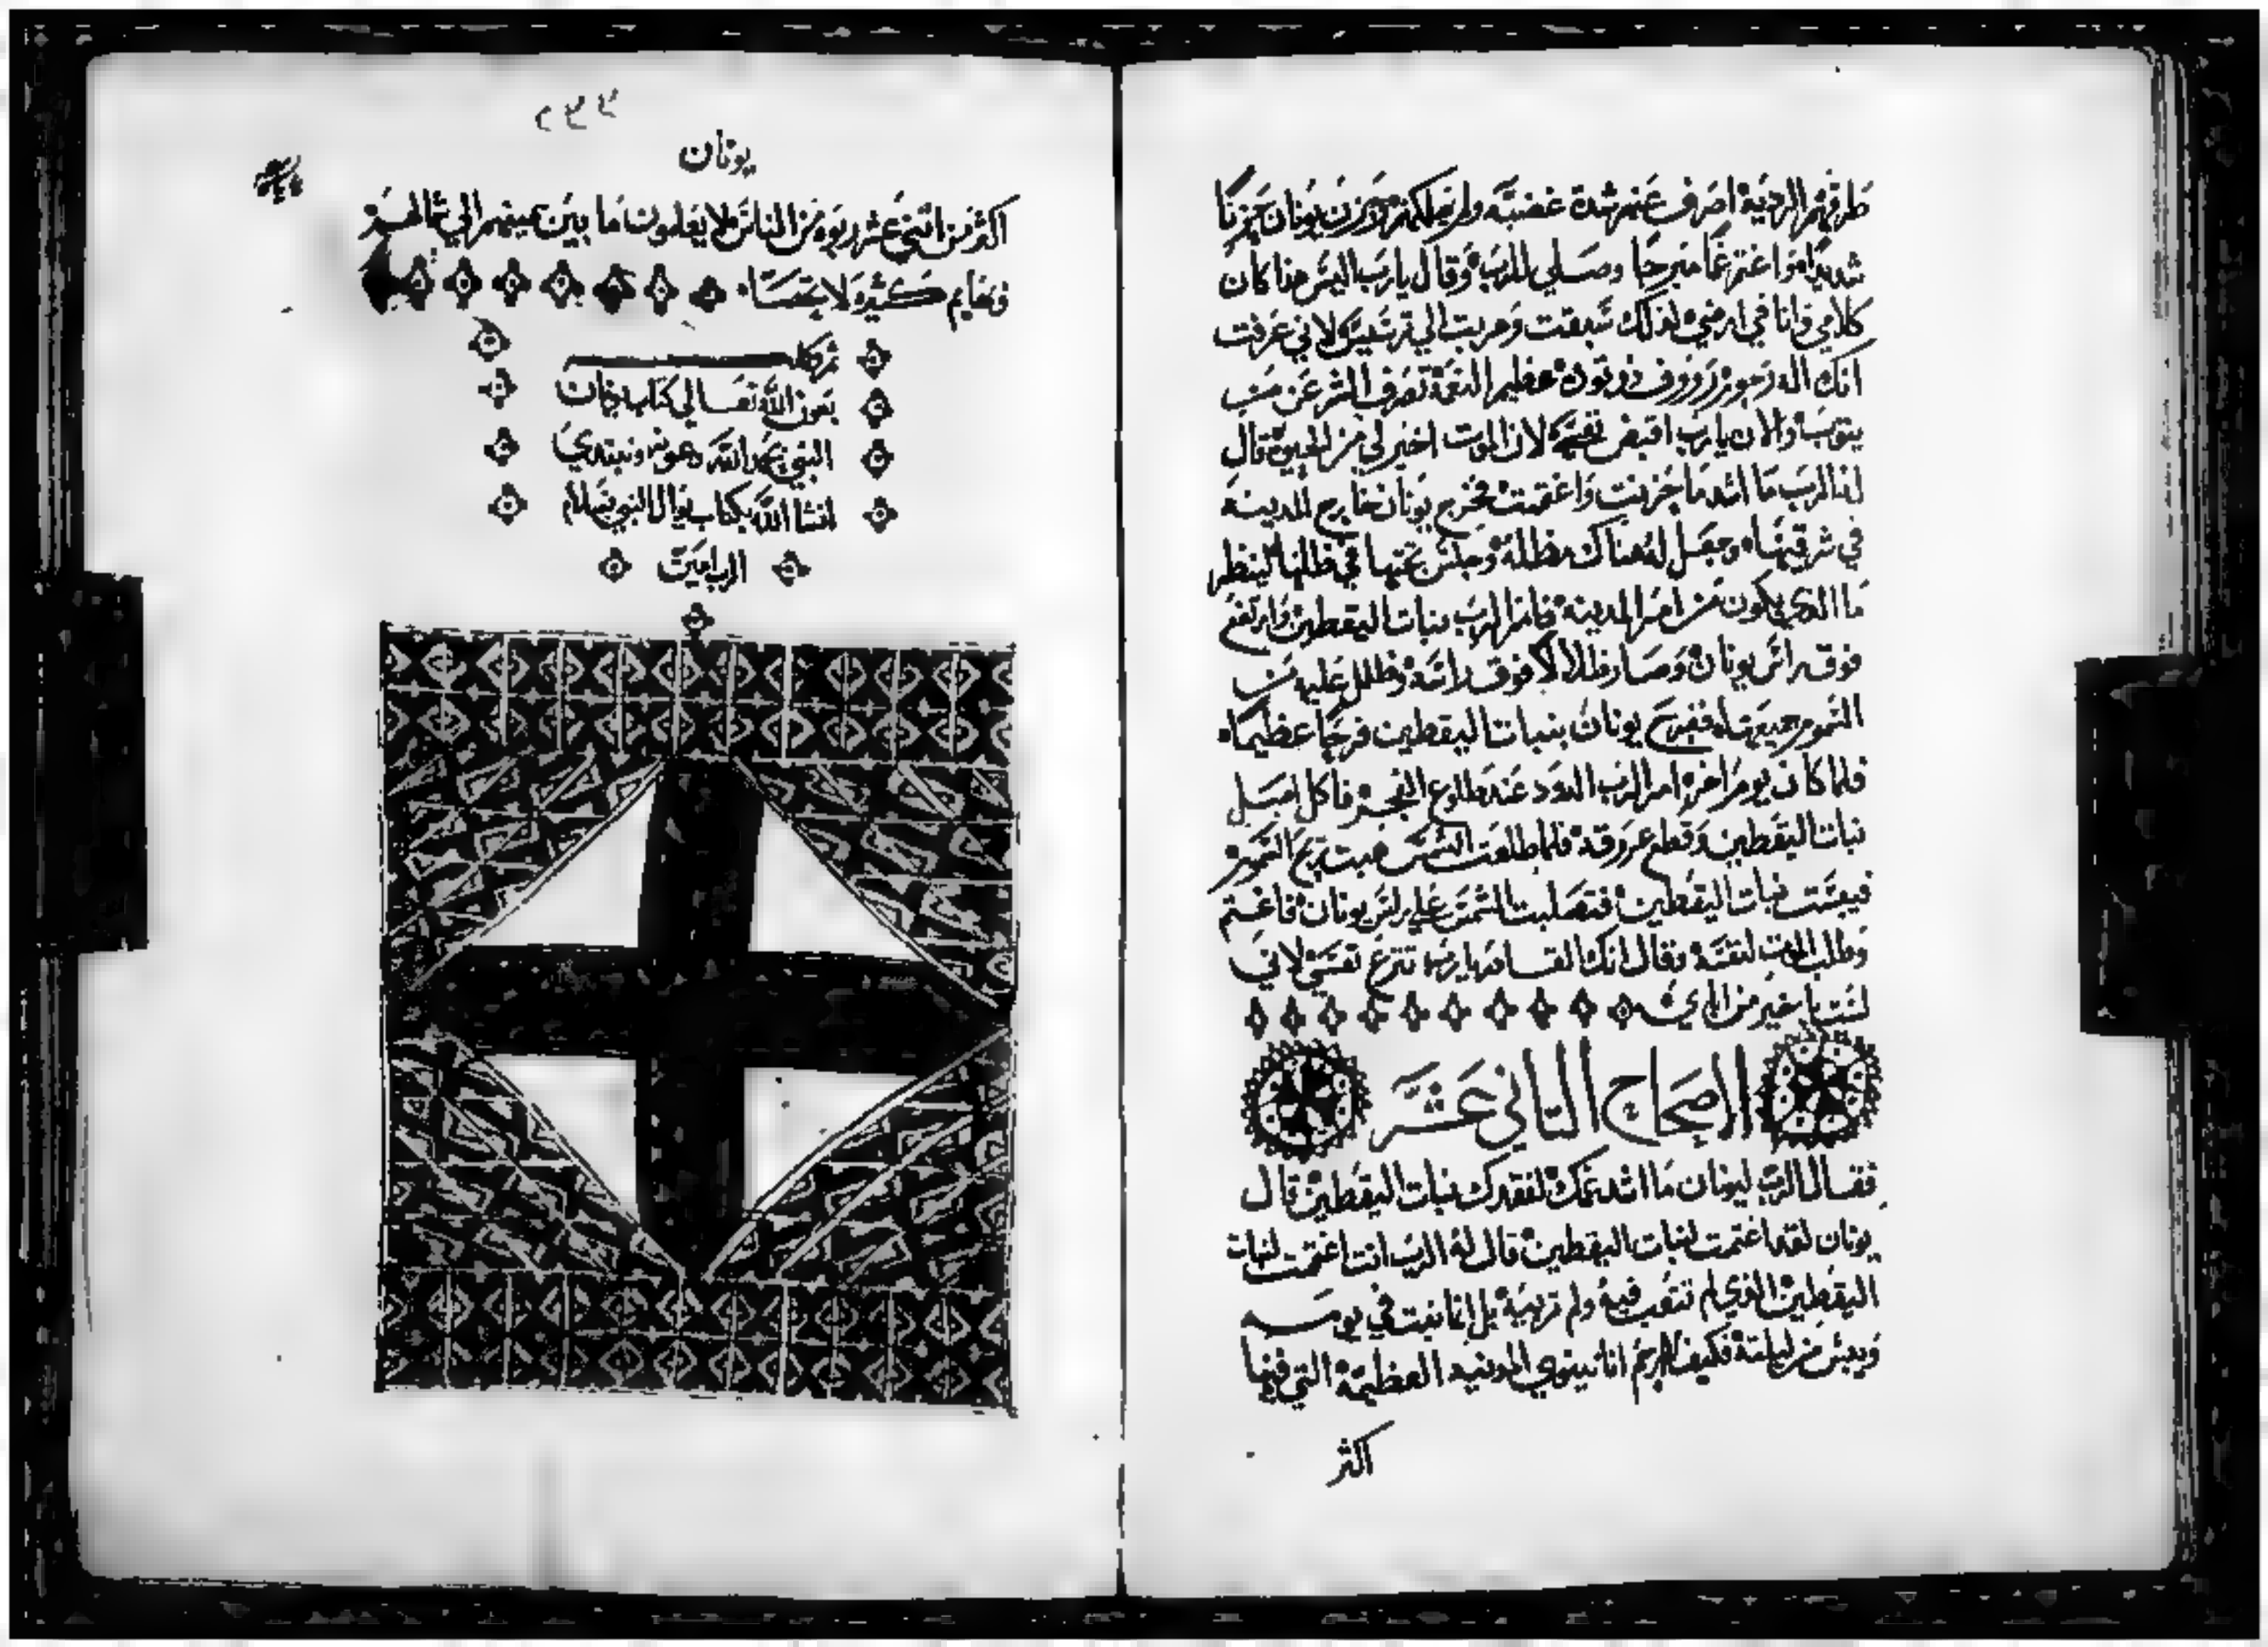 طرقهم الرديه اصرف عنهم شدة غضبه ولم يهلكهم وحزن يونان حزنا
شديدا واغتم غما مبرحا وصلي للرب وقال يارب اليس هذا كان
كلامي وانا في ارضي لذلك سبقت وهربت الي ترشيش لاني عرفت
انك اله رحوم رووف ذو تون عظيم النعمة تصرف الشر عن من
يتوب والان يارب اقبض نفسي لان الموت اخير لي من الحيوة قال
له الرب ما اشد ما حزنت واغتممت فخرج يونان خارج المدينه
في شرقيها وجعل له هناك مظلة وجلس تحتها في ظلها لينظر
ما الذي يكون من امر المدينه فامر الرب نبات اليقطين وارتفع
فوق راس يونان وصار ظلالا فوق راسه وظلل عليه من
السموم جميعها ففرح يونان بنبات اليقطين فرحا عظيما
فلما كان يوم اخر امر الرب الدود عند طلوع الفجر فاكل اصل
نبات اليقطين وقطع عروقه فلما طلعت الشمس هبت ريح السموم
فيبست نبات اليقطين فتصلبت الشمس علي راس يونان فاغتم
وطلب الموت لنفسه وقال انك القادر يارب تنزع نفسي لاني
لست باخير من اباي
الاصحاح الثاني عشر
فقال الرب ليونان ما اشد غمك لفقدك نبات اليقطين قال
يونان لقد اغتممت لنبات اليقطين قال له الرب انت اغتممت لنبات
اليقطين الذي لم تتعب فيه ولم تربيه بل انما نبت في يوم
ويبس من ليلته فكيف لا ارحم انا نينوي المدينه العظيمة التي فيها
اكثر
٢٣٣
يونان
اكثر من اثني عشر ربوه من الناس لا يعلمون ما بين يمينهم الي شمالهم
وبهايم كثيره لا تحصا
تم وكمل
بعون الله تعالي كتاب يونان
النبي بحمد الله وعونه ونبتدي
انشا الله بكتاب يوال النبي بسلام
الرب امين